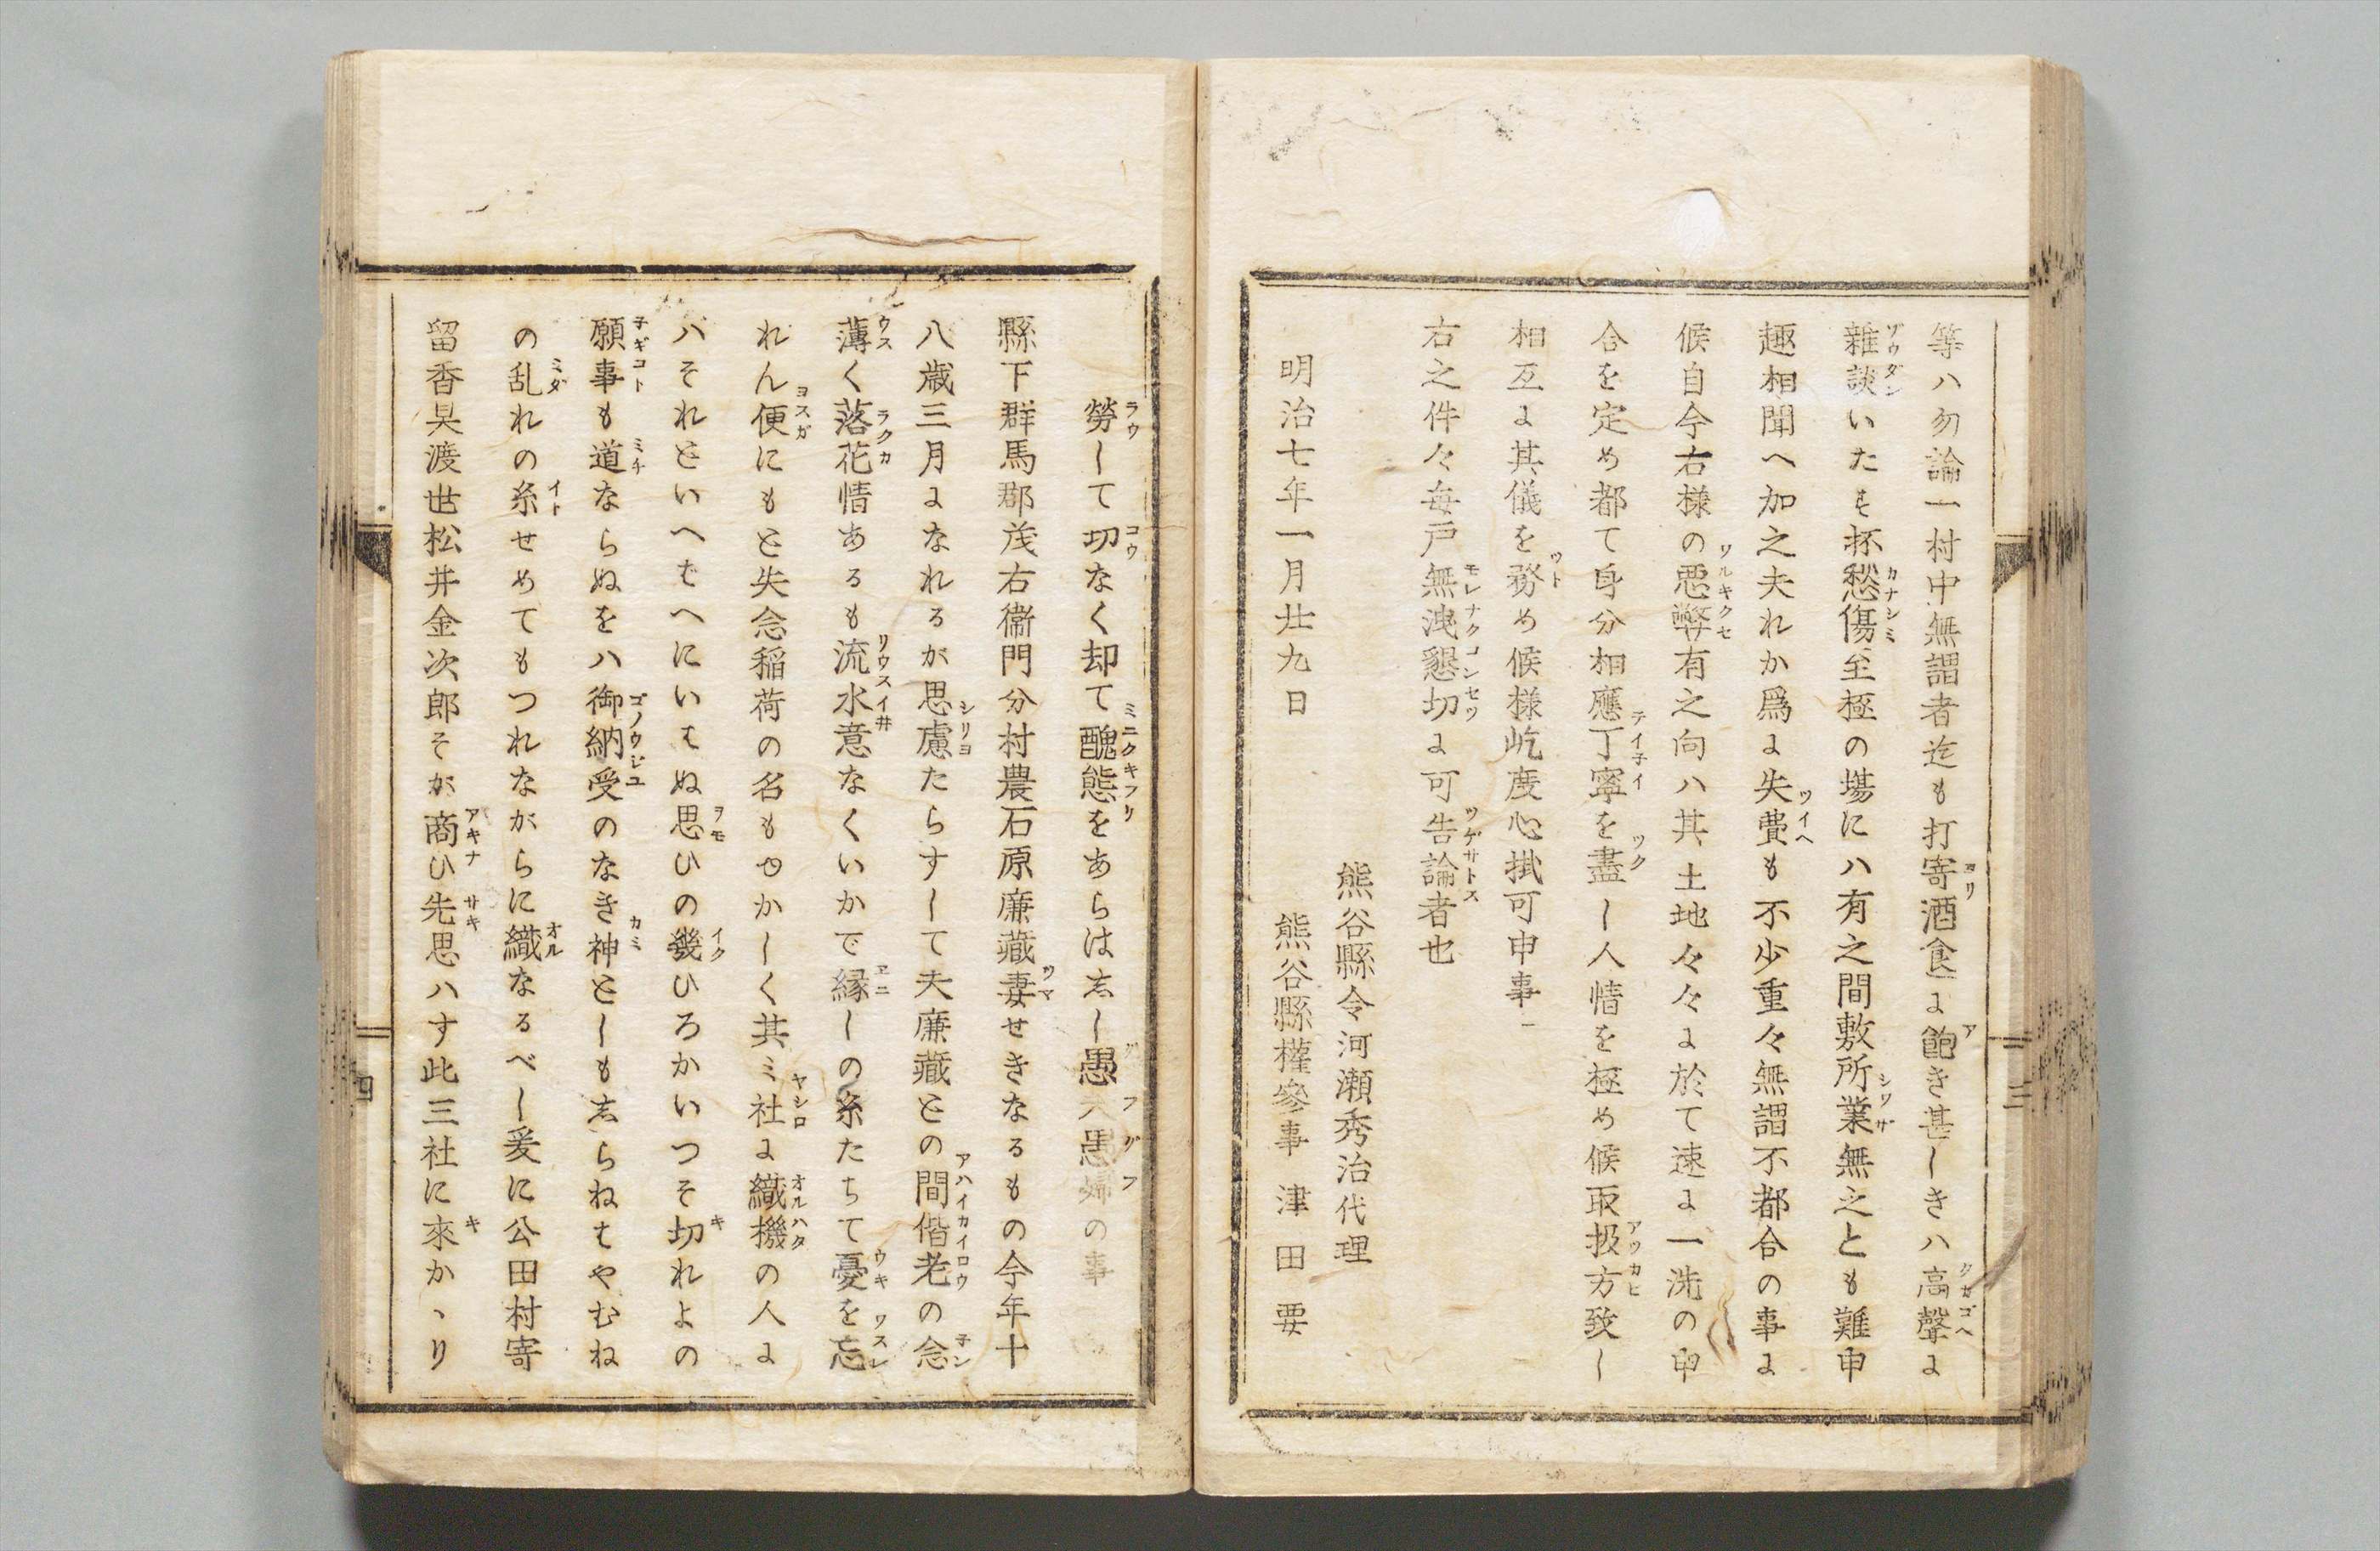 等ハ勿論一村中無謂者迄も打寄酒食に飽き甚しきハ高聲に
雜談いたし抔愁傷至極の塲にハ有之間敷所業無之とも難申
趣相聞へ加之夫れか爲に失費も不少重々無謂不都合の事に
候自今右樣の惡弊有之向ハ其土地々々に於て速に一洗の申
合を定め都て身分相應丁寧を盡し人情を極め候取扱方致し
相互に其儀を務め候樣屹度心掛可申事
右之件々毎戸無洩懇切に可告論者也
熊谷縣令河瀬秀治代理
明治七年一月廿九日 熊谷縣權參事 津田要
勞して切なく却て醜態をあらは志し愚夫愚婦の事
縣下群馬郡茂右衞門分村農石原廉藏妻せきなるもの今年十
八歳三月になれるが思慮たらすして夫廉藏との間偕老の念
薄く落花情あるも流水意なくいかで縁しの糸たちて憂を忘
れん便にもと失念稲荷の名もゆかしく其ミ社に織機の人に
ハそれといへどへにいはぬ思ひの幾ひろかいつそ切れよの
願事も道ならぬをハ御納受のなき神としも志らねはやむね
の乱れの糸せめてもつれながらに織なるべし爰に公田村寄
留香具渡世松井金次郎そが商ひ先思ハす此三社に來かゝり
三
四